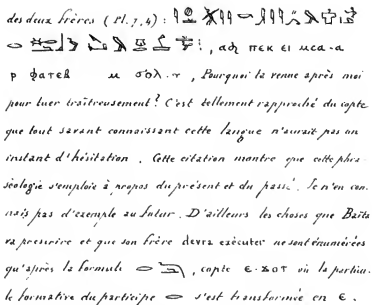 des deux frères (Pl. 7, 4) :
, ⲁϧ ⲡⲉⲕ ⲉⲓ ⲙⲥⲁ-ⲁ
ⲣ ϥⲁⲧⲉⲃ ⲙ ϭⲟⲗ , Pourquoi ta venue après moi
pour tuer traîtreusement ? C'est tellement rapproché du copte
que tout savant connaissant cette langue n'aurait pas un
instant d'hésitation. Cette citation montre que cette phra-
séologie s'emploie à propos du présent et du passé. Je n'en con-
nais pas d'exemple au futur. D'ailleurs les choses que Baïta
va prescrire et que son frère devra exécuter ne sont énumérées
qu'après la formule , copte ⲉ-ϫⲟⲧ où la particu-
le formative du participe s'est transformée en ⲉ.